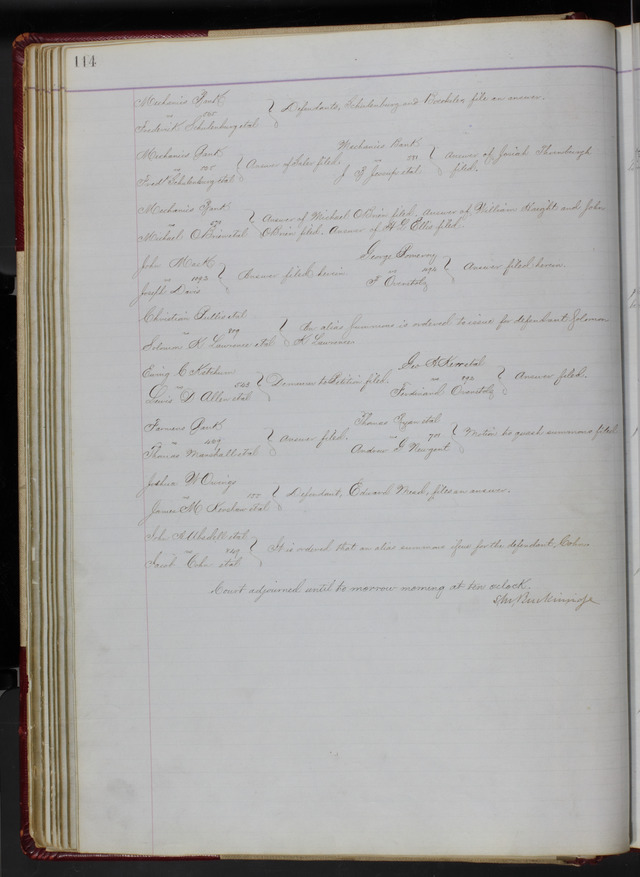 114
Mechanics Bank
vs
Frederick Schulenburg et al } Defendants, Schulenburg and Boeckeler file an answer.
Mechanics Bank
vs
Fred. Schulenburg et al } Answer of filed.
Mechanics Bank
vs
J. J. et al } Answer of Josiah Thornburgh filed.
Mechanics Bank
vs
Michael O'Brien et al } Answer of Michael O'Brien filed. Answer of William Haight and John O'Brien filed. Answer of H. G. Ellis filed.
John Mack
vs
Joseph Davis } Answer filed herein
George Pomeroy
vs
F Overstolz } Answer filed herein.
Christian et al
vs
Solomon K. Lawrence et al } An alias Summons is ordered to issue for defendant Solomon K Lawrence
Ewing C Ketchum
vs 543
Lewis D Allen et al } Demurrer to Petition filed.
Geo. A Kerr et al
vs
Ferdinand Overstolz } Answer filed.
Farmers Bank
vs
Thomas Marshall et al } Answer filed.
Thomas Ryan et al
vs
Andrew F Nougent } Motion to quash summons filed
Joshua W Owings
vs
James M Kershaw et al } Defendant, Edward Mead, files an answer.
John A Ubsdell et al
vs
Jacob Cohn et al } It is ordered that an alias summons issue for the defendant, Cohn
Court adjourned until to morrow morning at ten oclock.
Saml Breckinridge